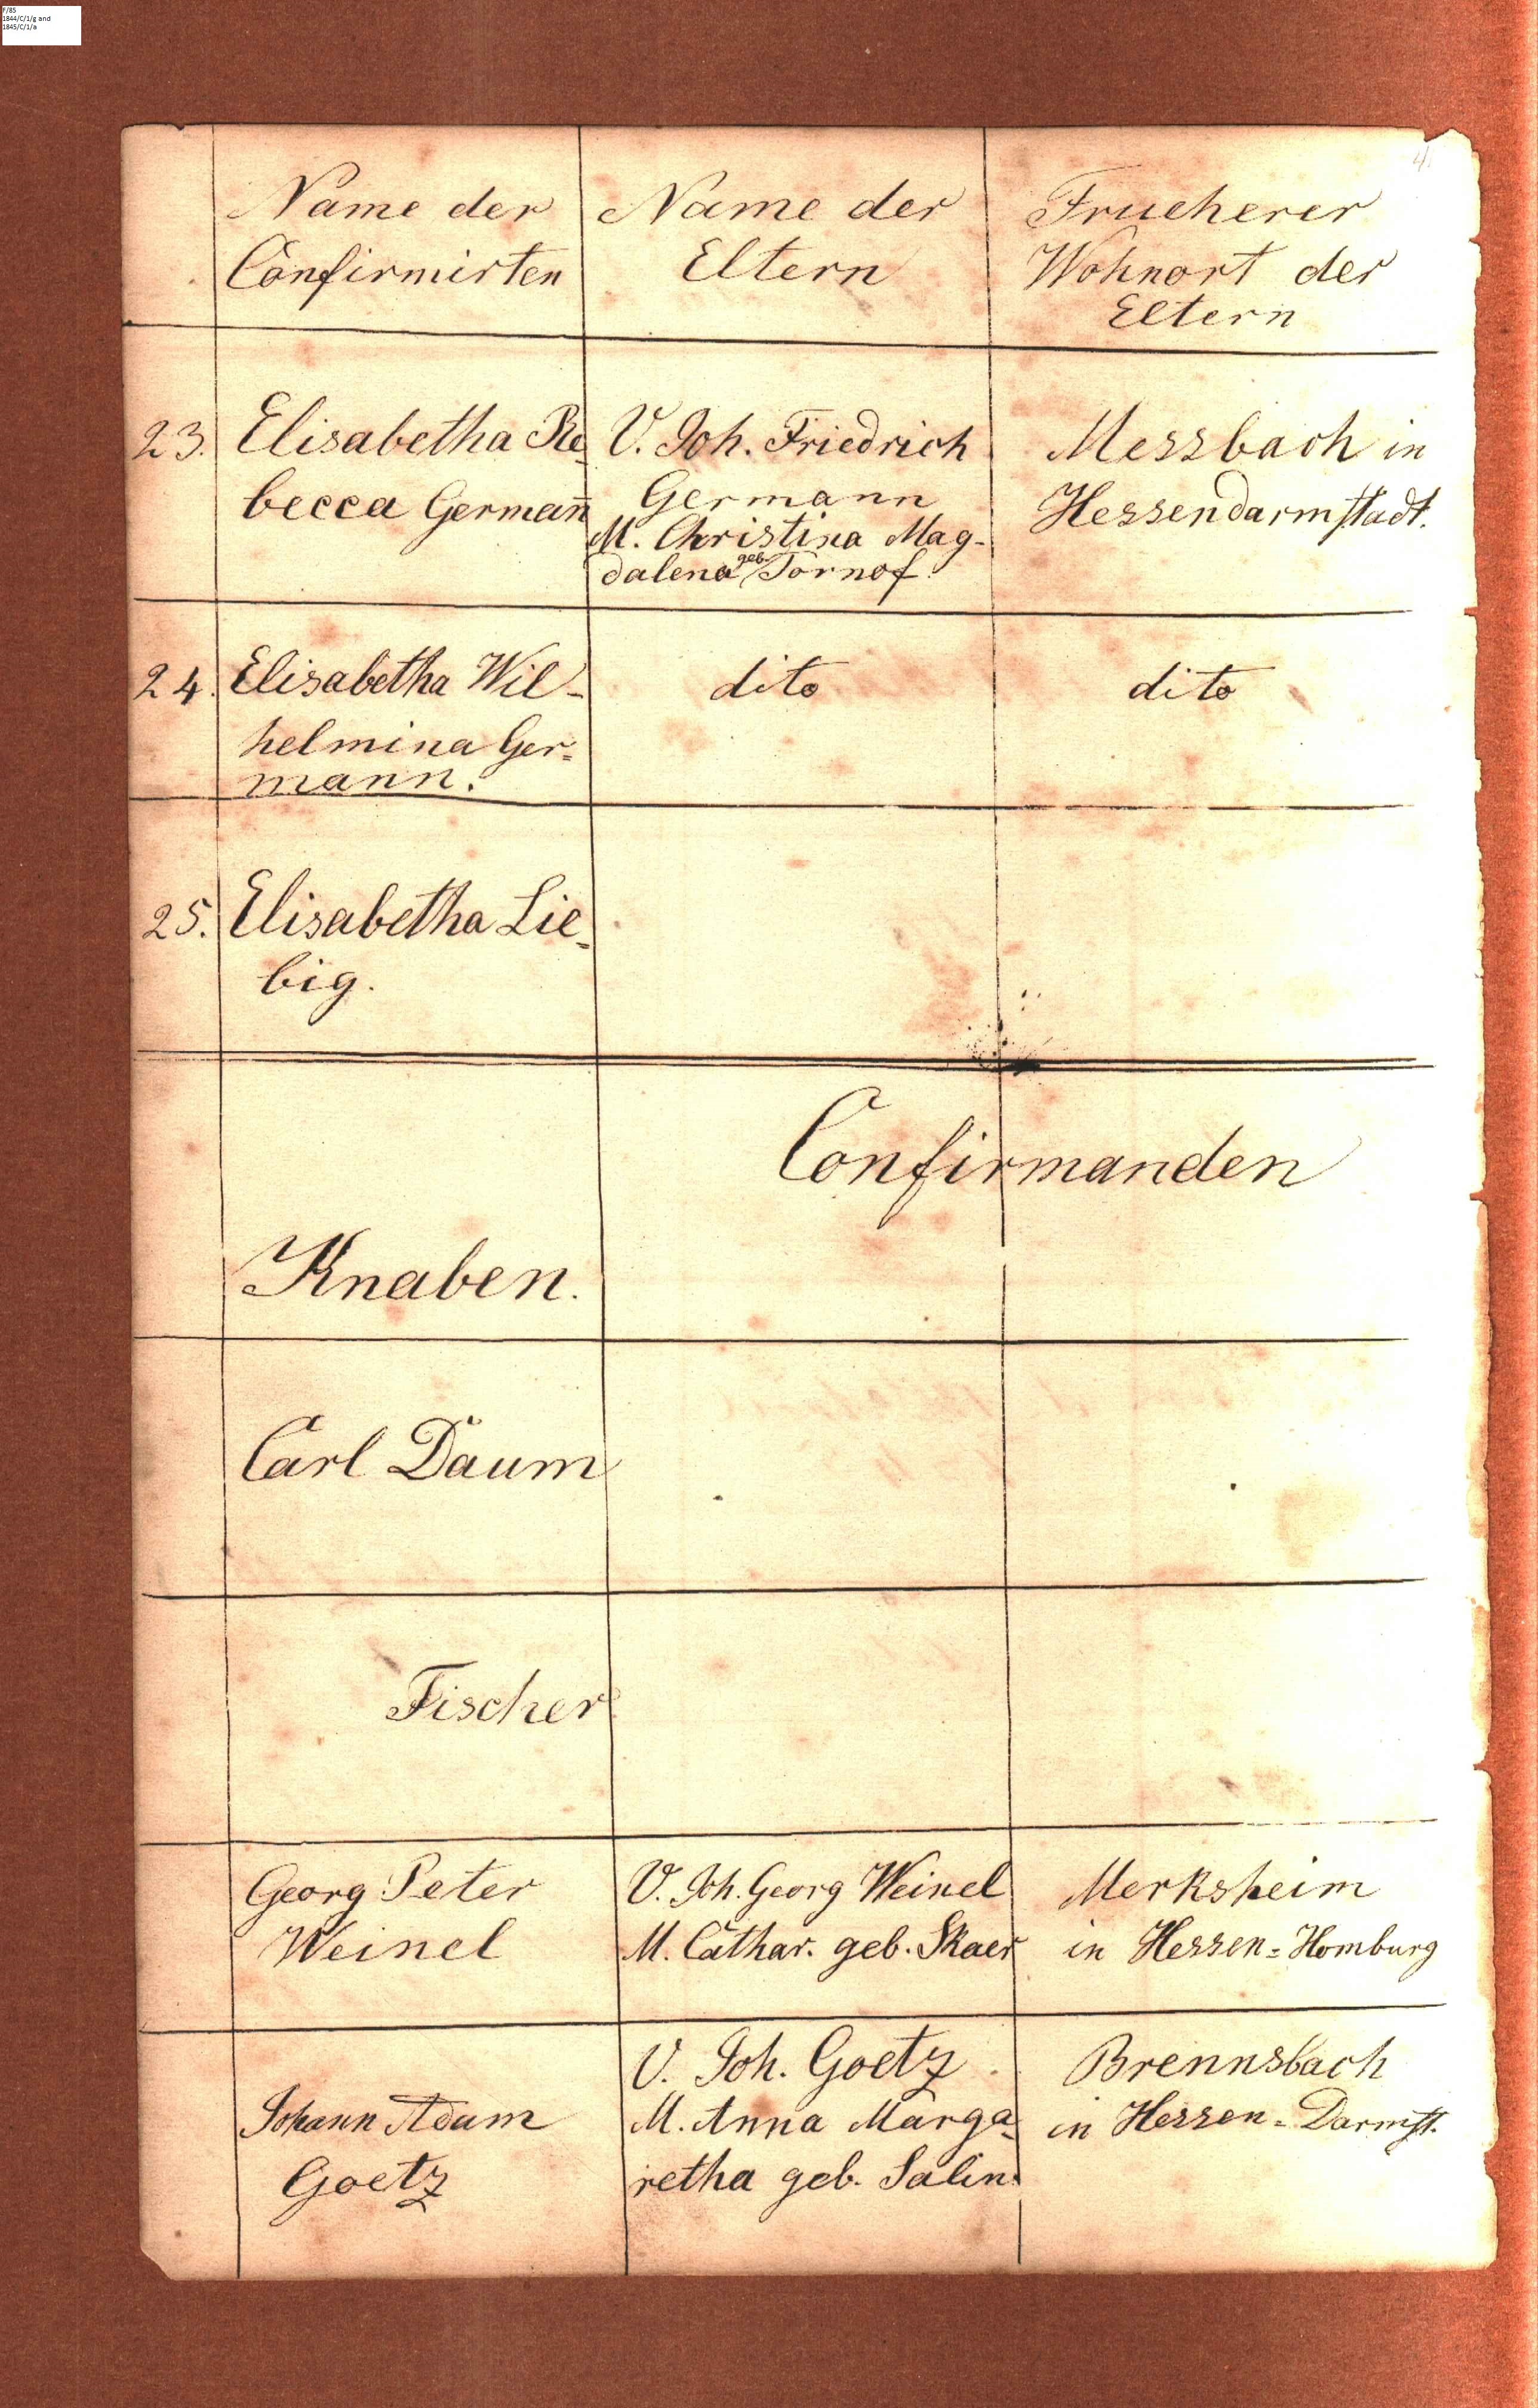 F/85
1844/C/1/g and
1845/C/1/a
4.
Name der
Confirmirten
Name der
Eltern
Frueherer
Wohnort der
Eltern
23.
Elisabetha Re-
becca German̄
V. Joh. Friedrich
Germann
M. Christina Mag-
dalena geb. Tornof.
Messbach in
Hessendarmstadt.
24.
Elisabetha Wil-
helmina Ger=
mann.
dito
dito
25.
Elisabetha Lie-
big.
Confirmanden
Knaben.
Carl Daum
Fischer
Georg Peter
Weinel
V. Joh. Georg Weinel
M. Cathar. geb. Skaer
Merksheim
in Hessen=Homburg
Johann Adam
Goetz
V. Joh. Goetz
M. Anna Marga-
retha geb. Salin.
Brennsbach
in Hessen-Darmst.